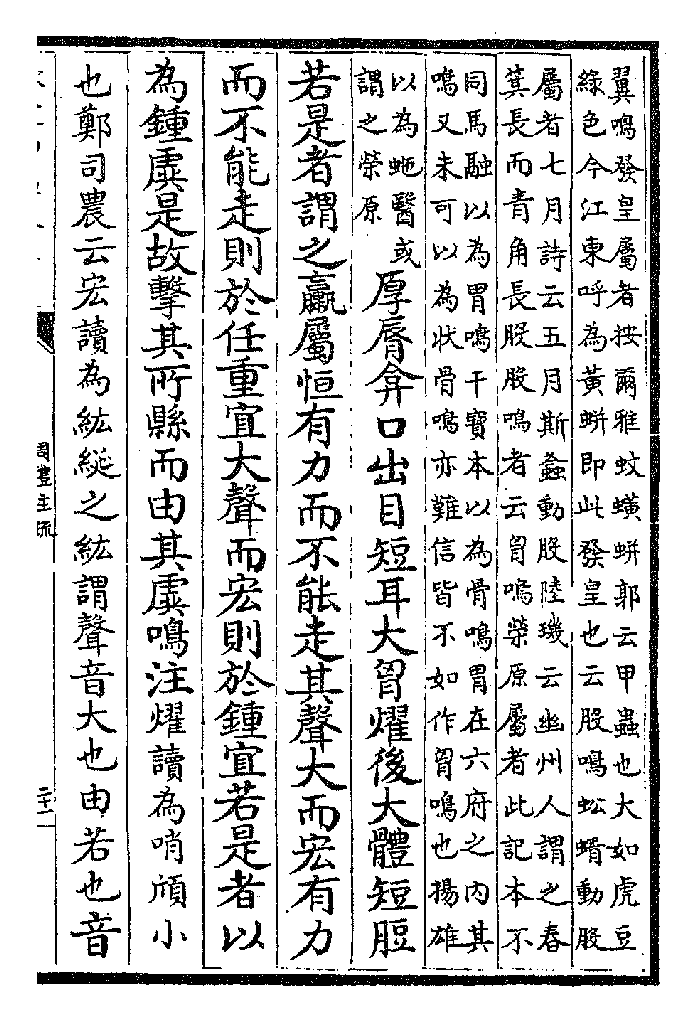 翼鳴發皇屬者按爾雅蚥蟥蛢郭云甲蟲也大如虎豆
綠色今江東呼為黃蛢即此發皇也云股鳴蚣蝑動股
屬者七月詩云五月斯螽動股陸璣云幽州人謂之舂
箕長而青角長股股鳴者云胷鳴榮原屬者此記本不
同馬融以為胃鳴干寶本以為骨鳴胃在六府之內其
鳴又未可以為狀骨鳴亦難信皆不如作胷鳴也揚雄
以為蚖醫或
謂之榮原
厚脣弇口出目短耳大胷燿後大體短脰
若是者謂之臝屬恒有力而不能走其聲大而宏有力
而不能走則於任重宜大聲而宏則於鍾宜若是者以
為鍾虡是故擊其所縣而由其虡鳴注燿讀為哨頎小
也鄭司農云宏讀為紘綖之紘謂聲音大也由若也音
周禮註疏
二十一